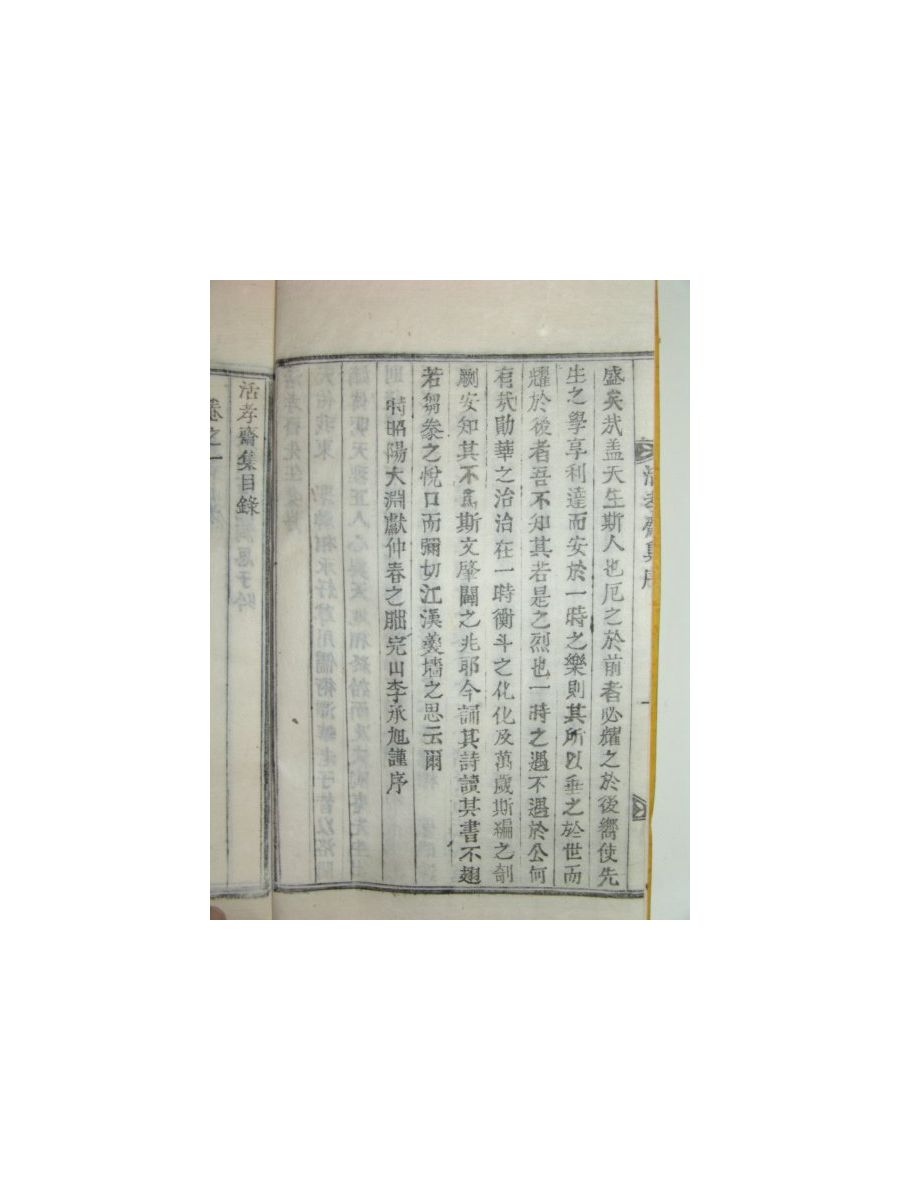 活孝齋集序
盛矣哉盖天生斯人也厄之於前者必耀之於後嚮使先
生之學享利達而安於一時之樂則其所以垂之於世而
耀於後者吾不知其若是之烈也一時之遇不遇於公何
有哉勛華之治治在一時衡斗之化化及萬歲斯編之剞
劂安知其不爲斯文肇闢之兆耶今誦其詩讀其書不趐
若芻豢之悅口而彌切江漢羹墻之思云爾
時昭陽大淵獻仲春之朏完山李承旭謹序
活孝齋集目錄
卷之一